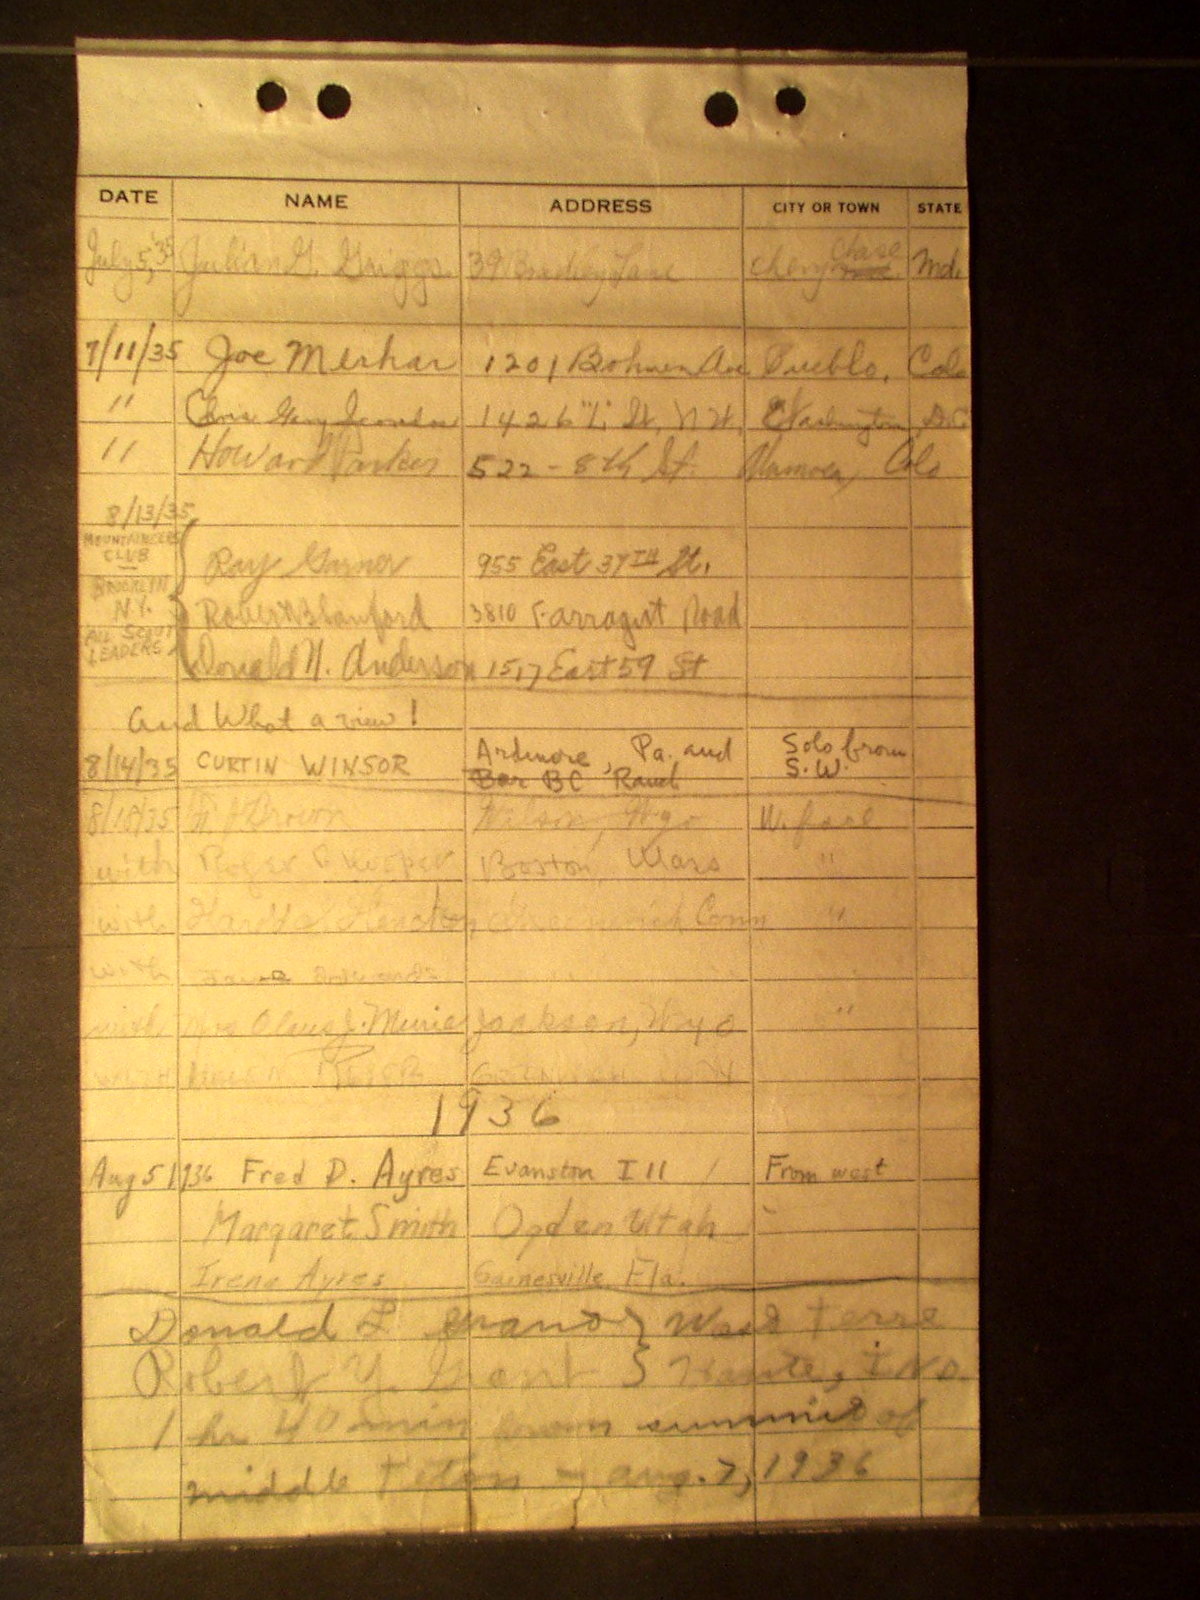 DATE NAME ADDRESS CITY OR TOWN STATE
July 5, '35 Julian G. Griggs 39 Bradley Lane Chevy Chase Md.
7/11/35 Joe Merhar 1201 Bohmen Ave Pueblo, Colo
" 1426 St. N.W. Washington, D.C.
" Howard Parker 522 - 8th St. Colo
8/13/35
MOUNTAINEERS CLUB
Ray Garner 955 East 37TH St.
BROOKLYN N.Y.
Robert Blanford 3810 Farragut Road
ALL SCOUT LEADERS
Donald N. Anderson 1517 East 59 St
And What a view!
8/14/35 CURTIN WINSOR Ardmore, Pa. and Bar BC Ranch Solo from S.W.
8/18/35 Brown Wilson, Wyo W. face
with Roger Boston, Mass "
with Greenwich Conn "
with
with Mrs Olaus J. Murie Jackson, Wyo "
with
1936
Aug 5 1936 Fred D. Ayres Evanston Ill From west
Margaret Smith Ogden Utah
Irene Ayres Gainesville, Fla.
Donald L Grant } West Terre
Robert Y. Grant } Haute, IND.
1 hr 40 min from summit of
middle Teton - Aug. 7, 1936